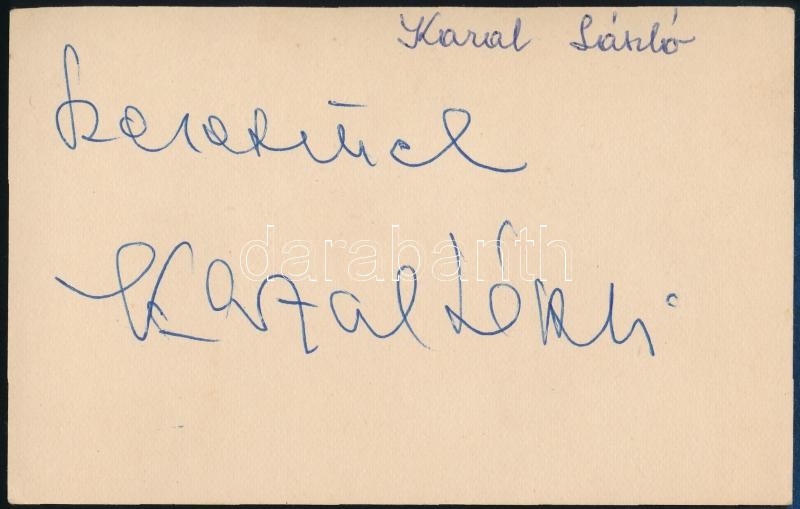 Kazal László
szeretettel
Kazal László
darabanth